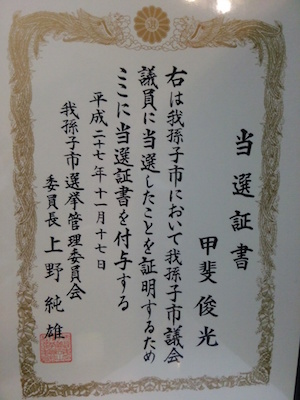 当選証書
甲斐俊光
右は我孫子市において我孫子市議会
議員に当選したことを証明するため
ここに当選証書を付与する
平成二十七年十一月十七日
我孫子市選挙管理委員会
委員長 上野純雄